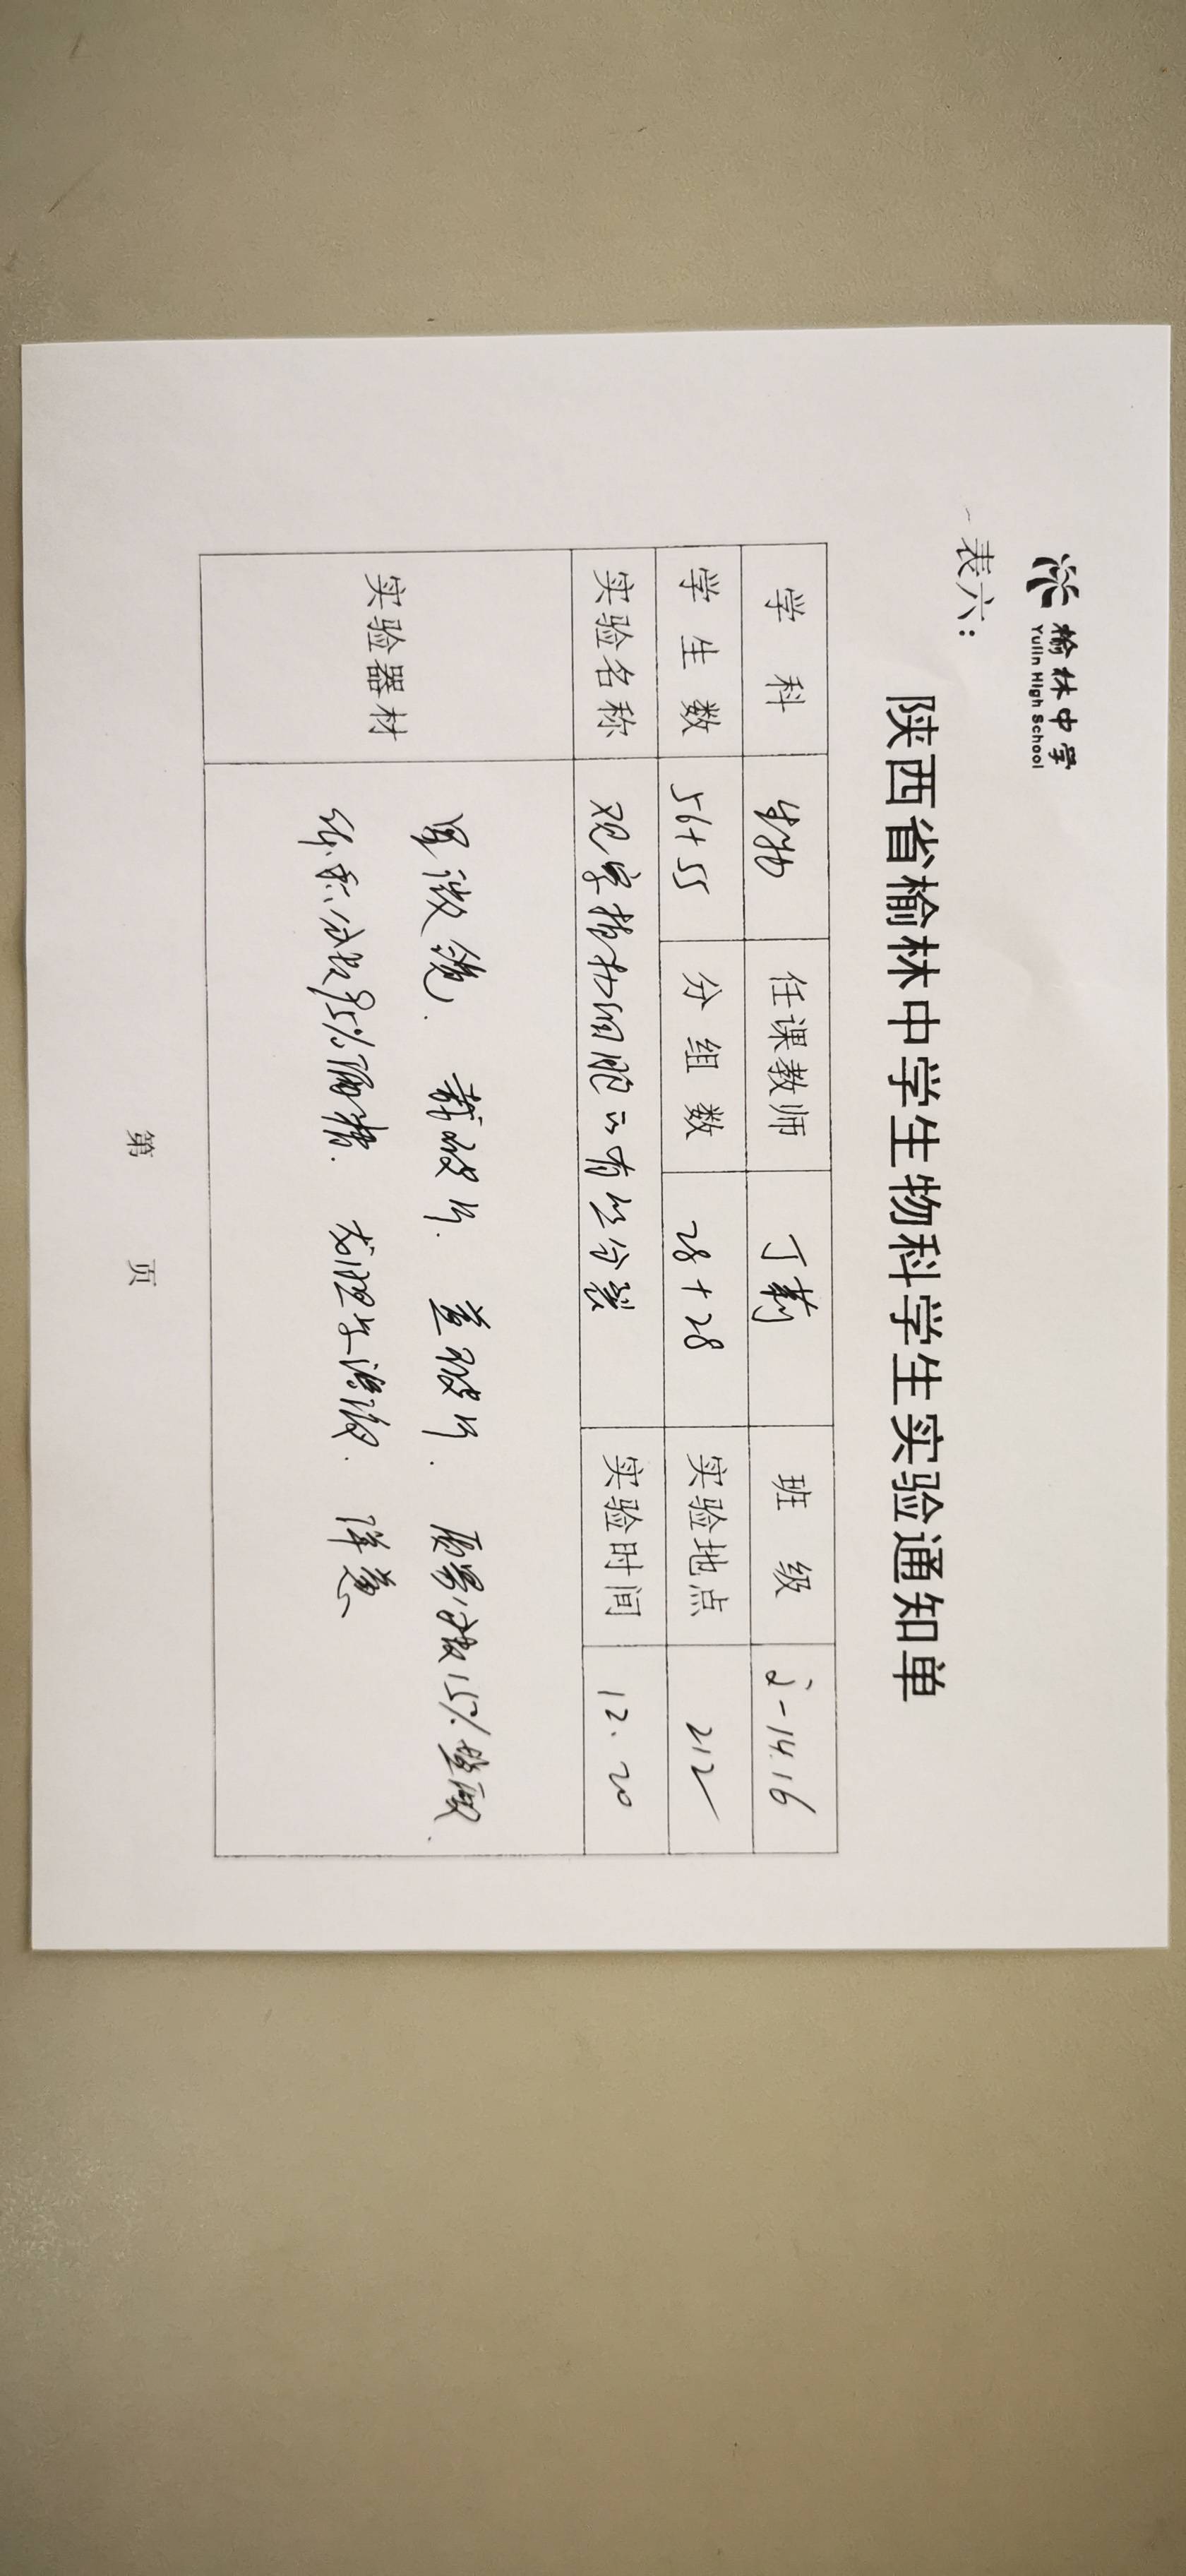 榆林中学
Yulin High School
表六:
陕西省榆林中学生物科学生实验通知单
学 科 生物 任课教师 丁莉 班 级 2-14.16
学 生 数 56+55 分 组 数 28+28 实验地点 212
实验名称 观察植物细胞的有丝分裂 实验时间 12.20
实验器材
显微镜. 载玻片. 盖玻片. 质量分数15%盐酸.
体积分数95%酒精. 龙胆紫溶液. 洋葱
第 页